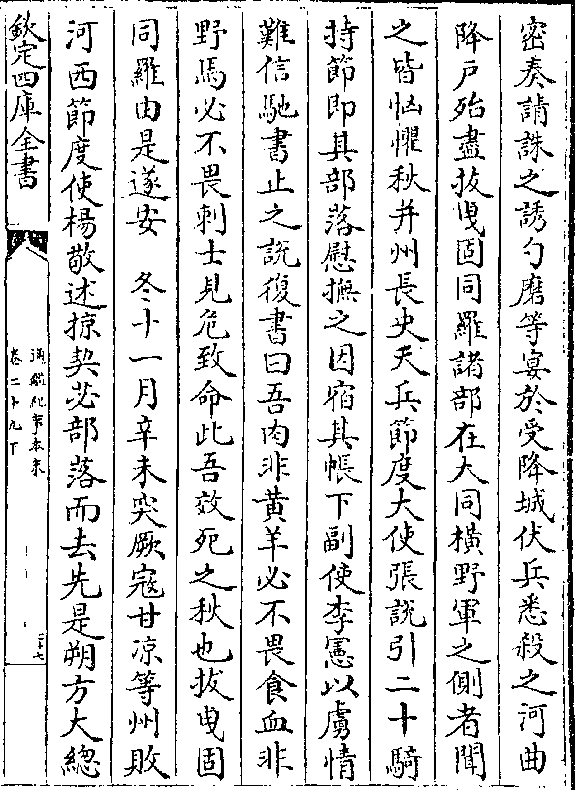 密奏請誅之誘勺磨等宴於受降城伏兵悉殺之河曲
降戸殆盡拔曳固同羅諸部在大同横野軍之側者聞
之皆忷懼秋并州長史天兵節度大使張説引二十騎
持節即其部落慰撫之因宿其帳下副使李憲以虜情
難信馳書止之説復書曰吾肉非黄羊必不畏食血非
野馬必不畏刺士見危致命此吾效死之秋也拔曳固
同羅由是遂安　冬十一月辛未突厥寇甘凉等州敗
河西節度使楊敬述掠契苾部落而去先是朔方大總
欽定四庫全書
通鑑紀事本末
卷二十九下
二十七